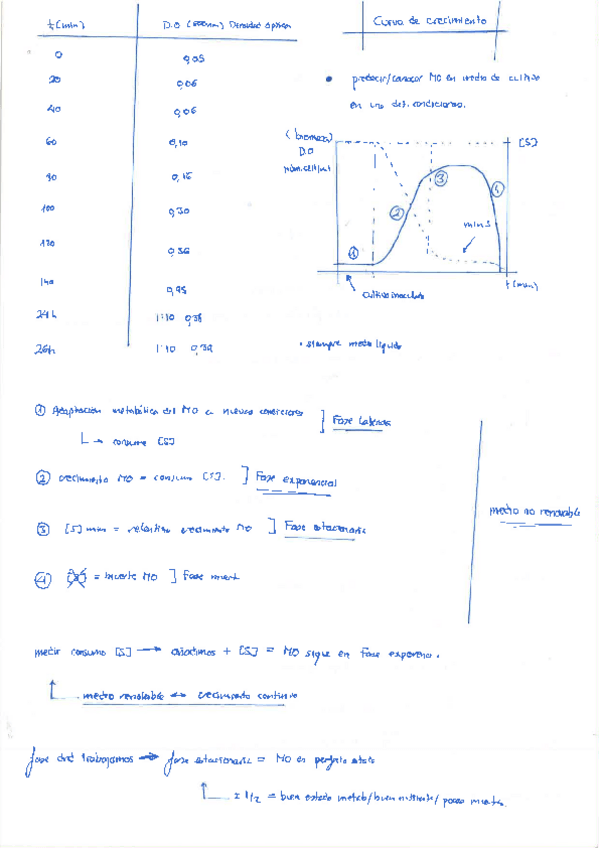 t (min) D.O (600nm) Densidad óptica
0 0,05
20 0,06
40 0,06
60 0,10
80 0,15
100 0,30
120 0,36
140
24h 1:10 0,38
26h 1:10 0,39
Curva de crecimiento
• predecir/conocer MO en medio de cultivo
en una det. condiciones.
(biomasa)
D.O
núm.cell/ml
[S]
① ② ③ 4
min S
t (min)
cultivo inoculado
• siempre medio líquido
① Adaptación metabólica del MO a nuevas condiciones ] Fase latencia
↳ consume [S]
② crecimiento MO = consumo [S]. ] Fase exponencial
③ [S] min = crecimiento MO ] Fase estacionaria
④ [S] = muerte MO ] Fase muert
medio no renovable
medir consumo [S] → añadimos + [S] = MO sigue en fase exponenc.
medio renovable ↔ crecimiento continuo
fase trabajamos → fase estacionaria = MO en perfecto estado
= buen estado metab/buen nutriente/ pocos muertos